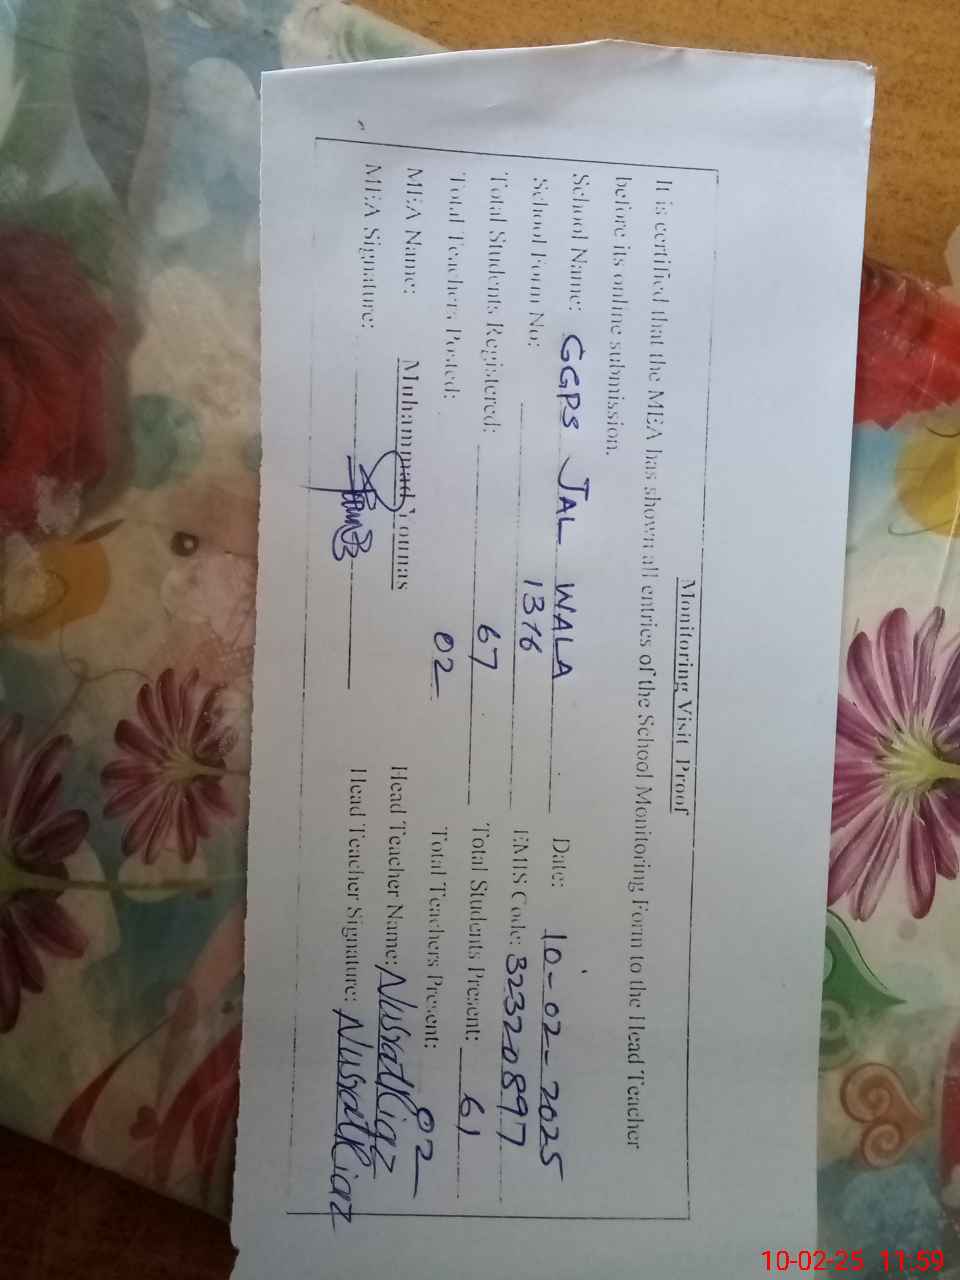 Monitoring Visit Proof
It is certified that the MEA has shown all entries of the School Monitoring Form to the Head Teacher
before its online submission.
School Name: GGPS JAL WALA Date: 10-02-2025
School Form No: 1376 EMIS Code: 32320897
Total Students Registered: 67 Total Students Present: 61
Total Teachers Posted: 02 Total Teachers Present: 02
MEA Name: Muhammad Younas Head Teacher Name: Nusrat Riaz
MEA Signature: Head Teacher Signature: Nusrat Riaz
10-02-25 11:59